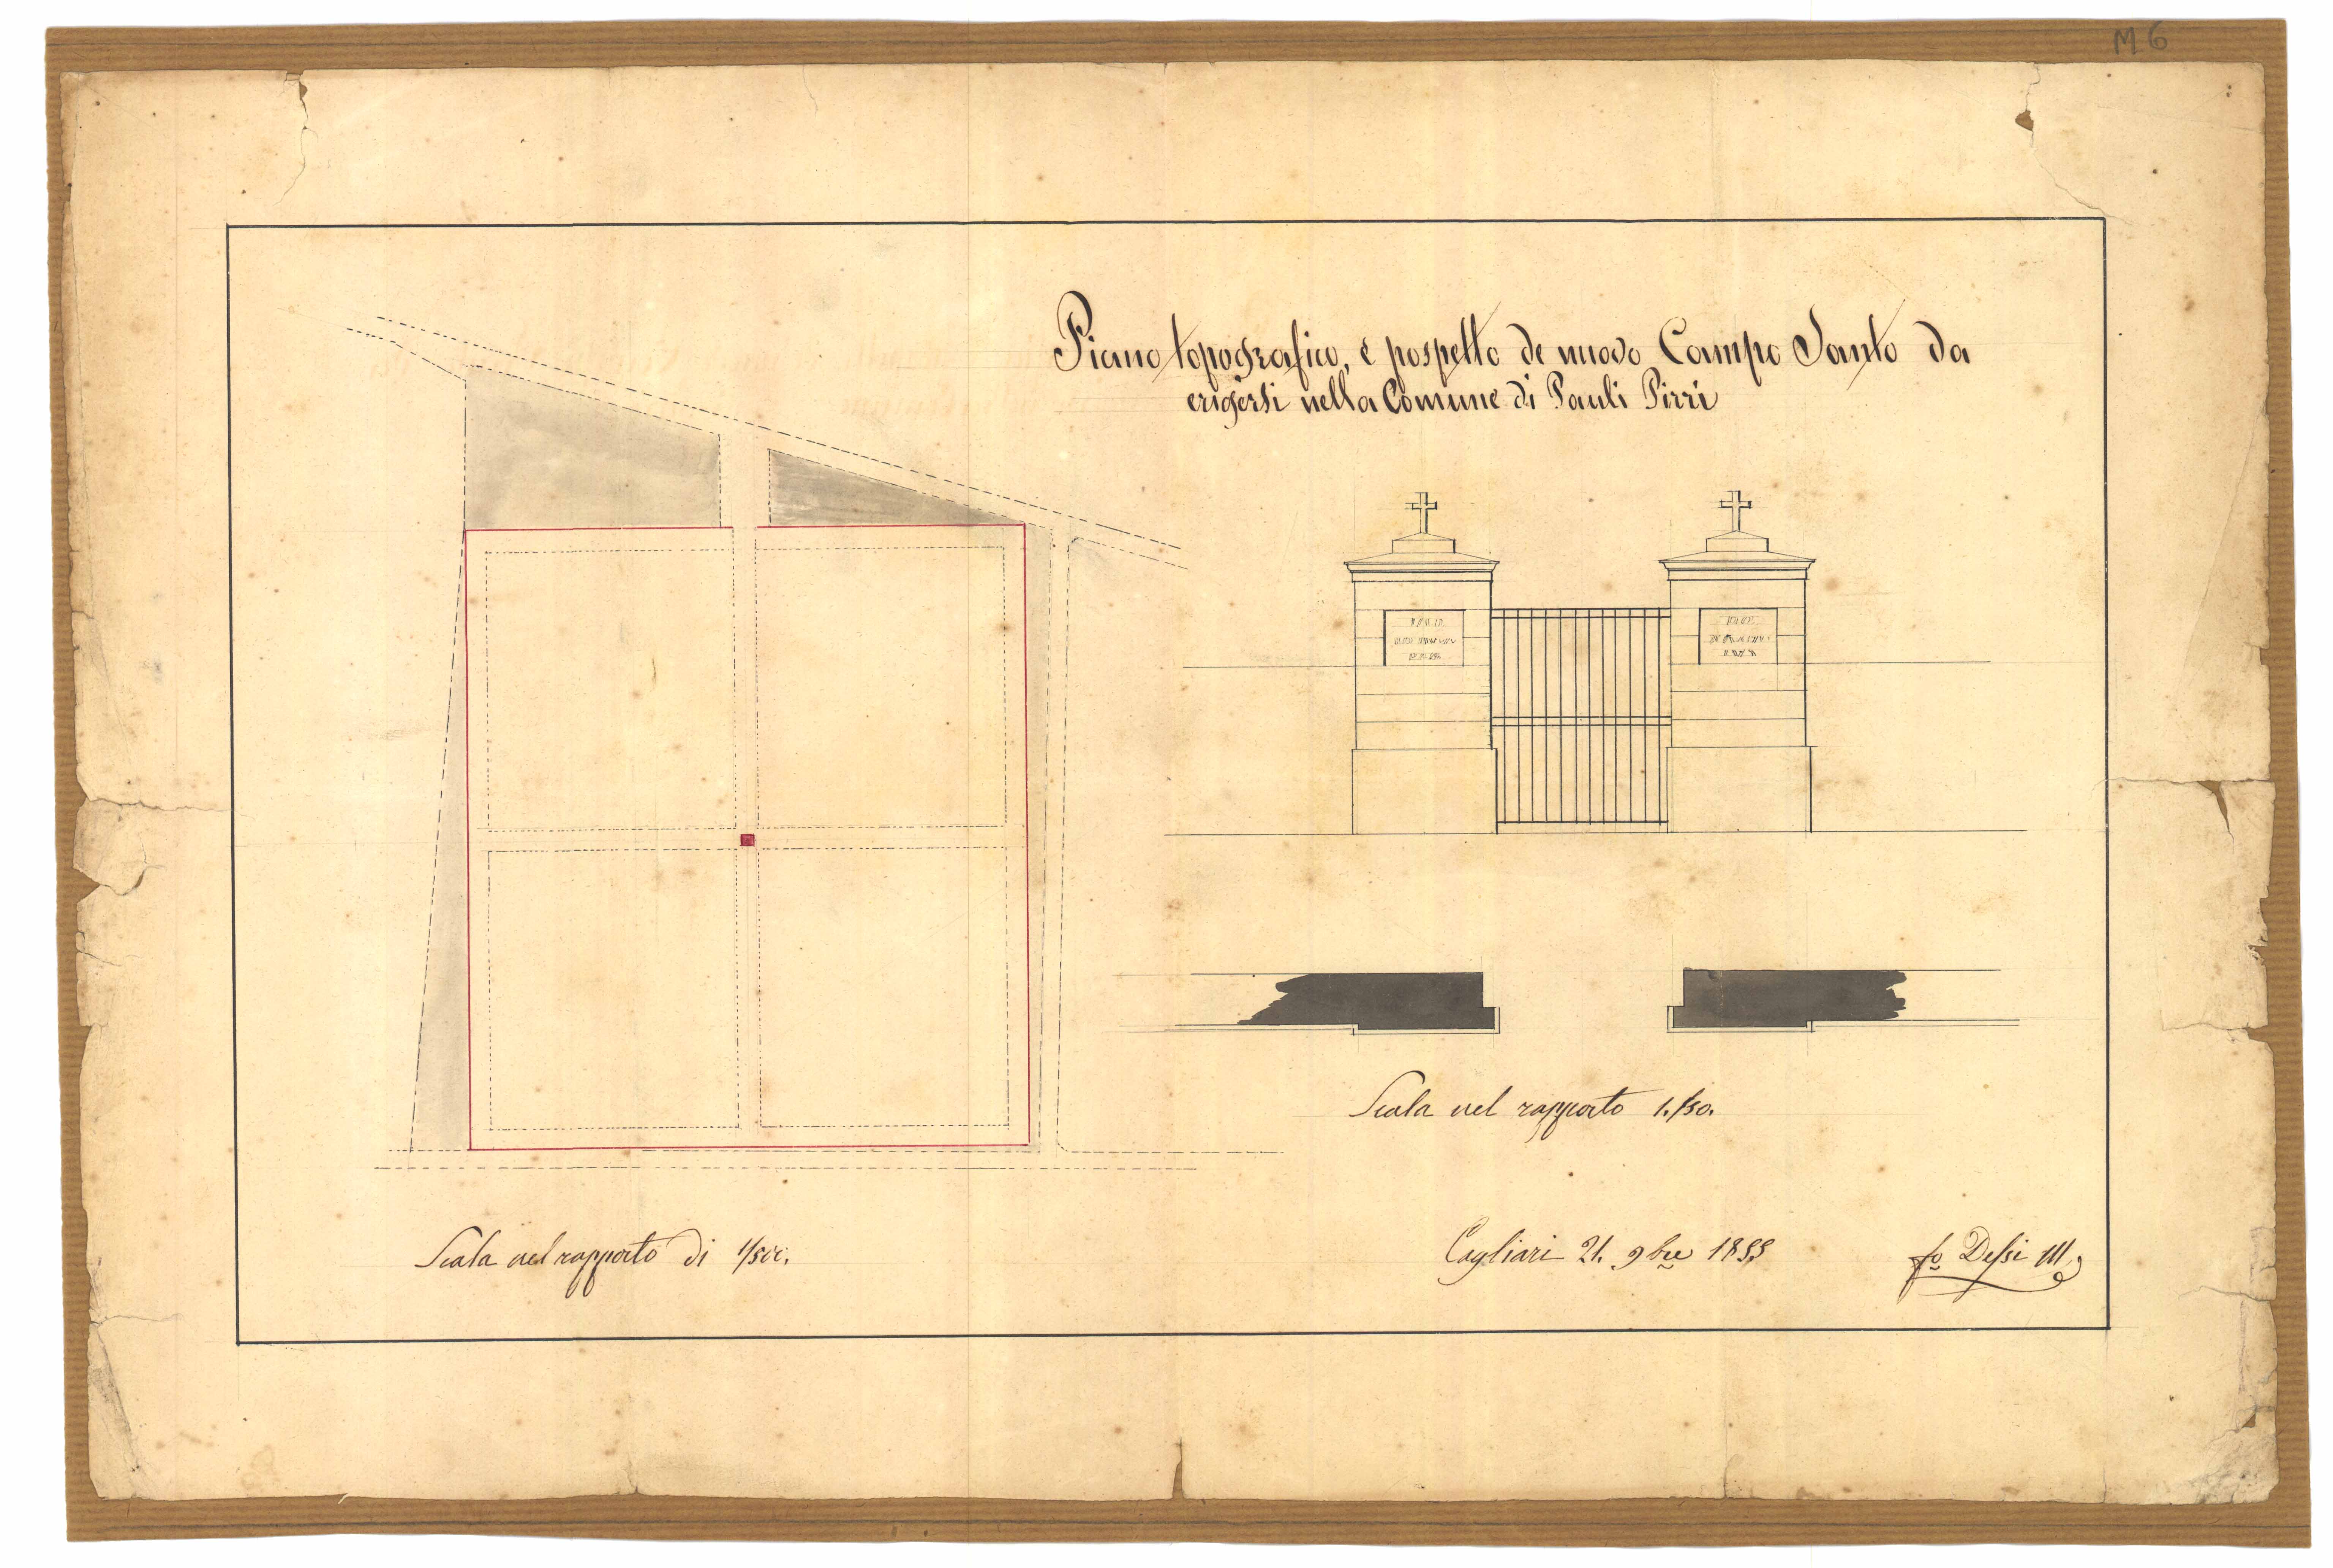 M 6
Piano topografico, e pospetto de nuovo Campo Santo da
erigersi nella Comune di Pauli Pirri
Scala nel rapporto 1./50.
Scala nel rapporto di 1/500.
Cagliari 21. 9bre 1855
fo Dessi